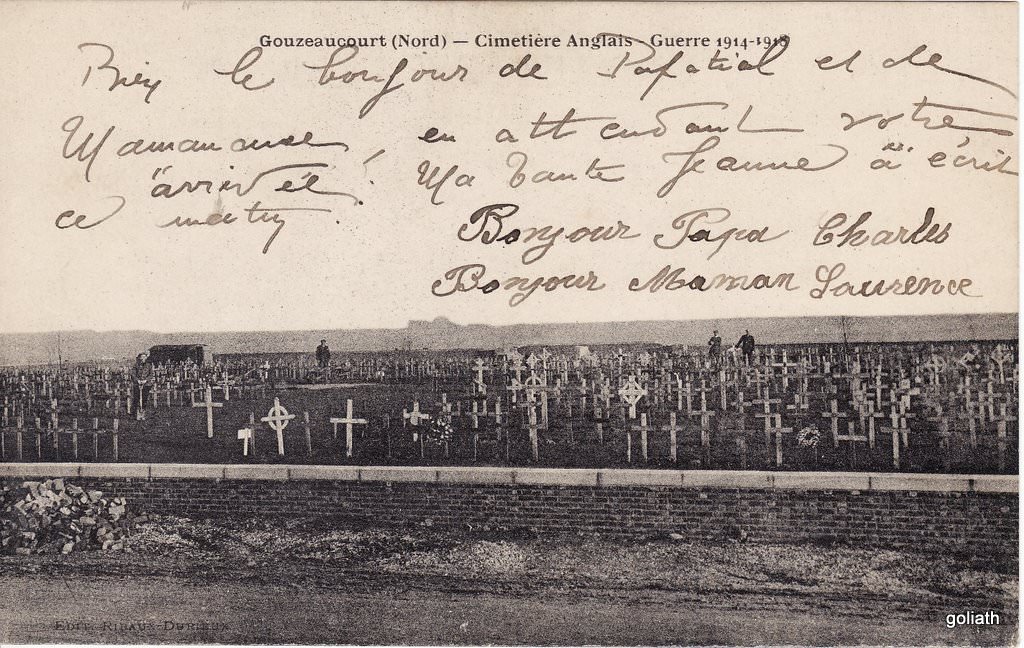 Gouzeaucourt (Nord) — Cimetière Anglais Guerre 1914-1918
Bien le bonjour de et de
en attendant votre
arrivée! Ma tante Jeanne a écrit
ce matin.
Bonjour Papa Charles
Bonjour Maman Laurence
EDIT. RIBAUX-DURIEUX
goliath